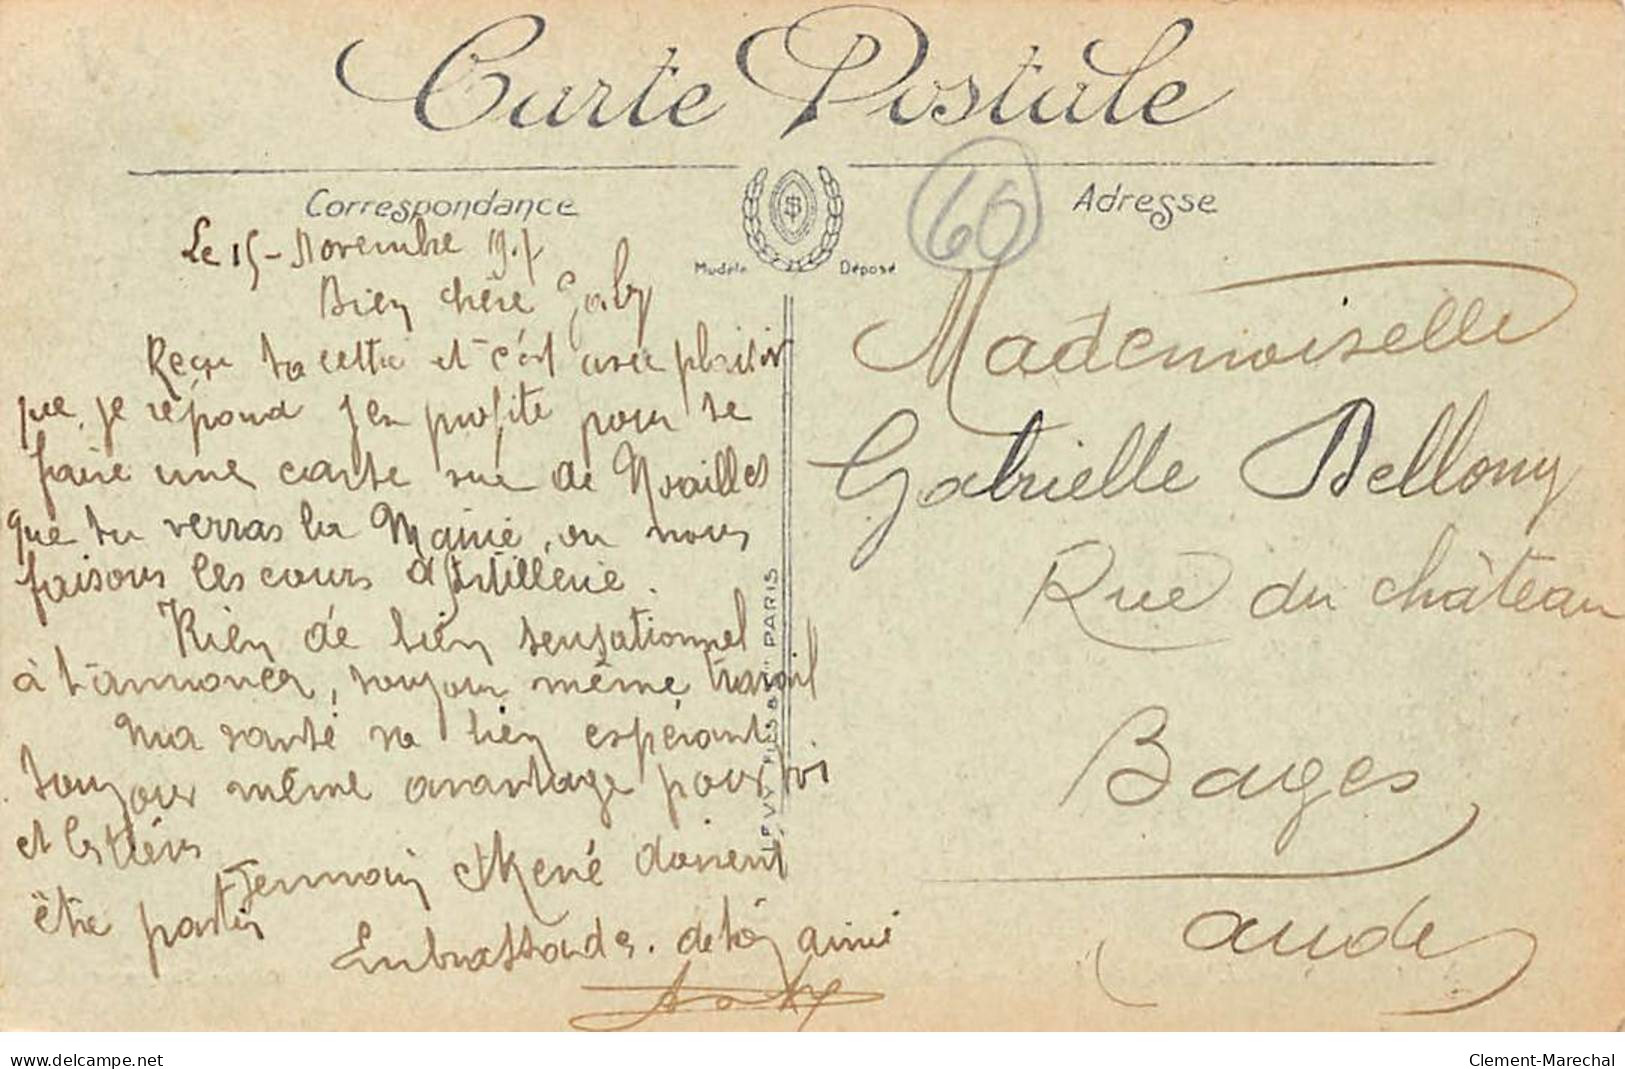 Carte Postale
Correspondance
Adresse
60
Modèle Déposé
Le 15 - Novembre 19.7
Bien chère Gaby
Reçu ta lettre et c'est avec plaisir
que je répond j'en profite pour te
faire une carte vue de Noailles
que tu verras la Mairie, ou nous
faisons les cours d'Artillerie.
Rien de bien sensationnel
à t'annoncer, toujour même travail
Ma santé va bien espérant
toujour même avantage pour toi
et les tiens
Germain et René doivent
être partis
Embrassades. de ton aimé
LEVY FILS & Cie PARIS
Mademoiselle
Gabrielle Bellouy
Rue du château
Bages
Aude
www.delcampe.net
Clement-Marechal